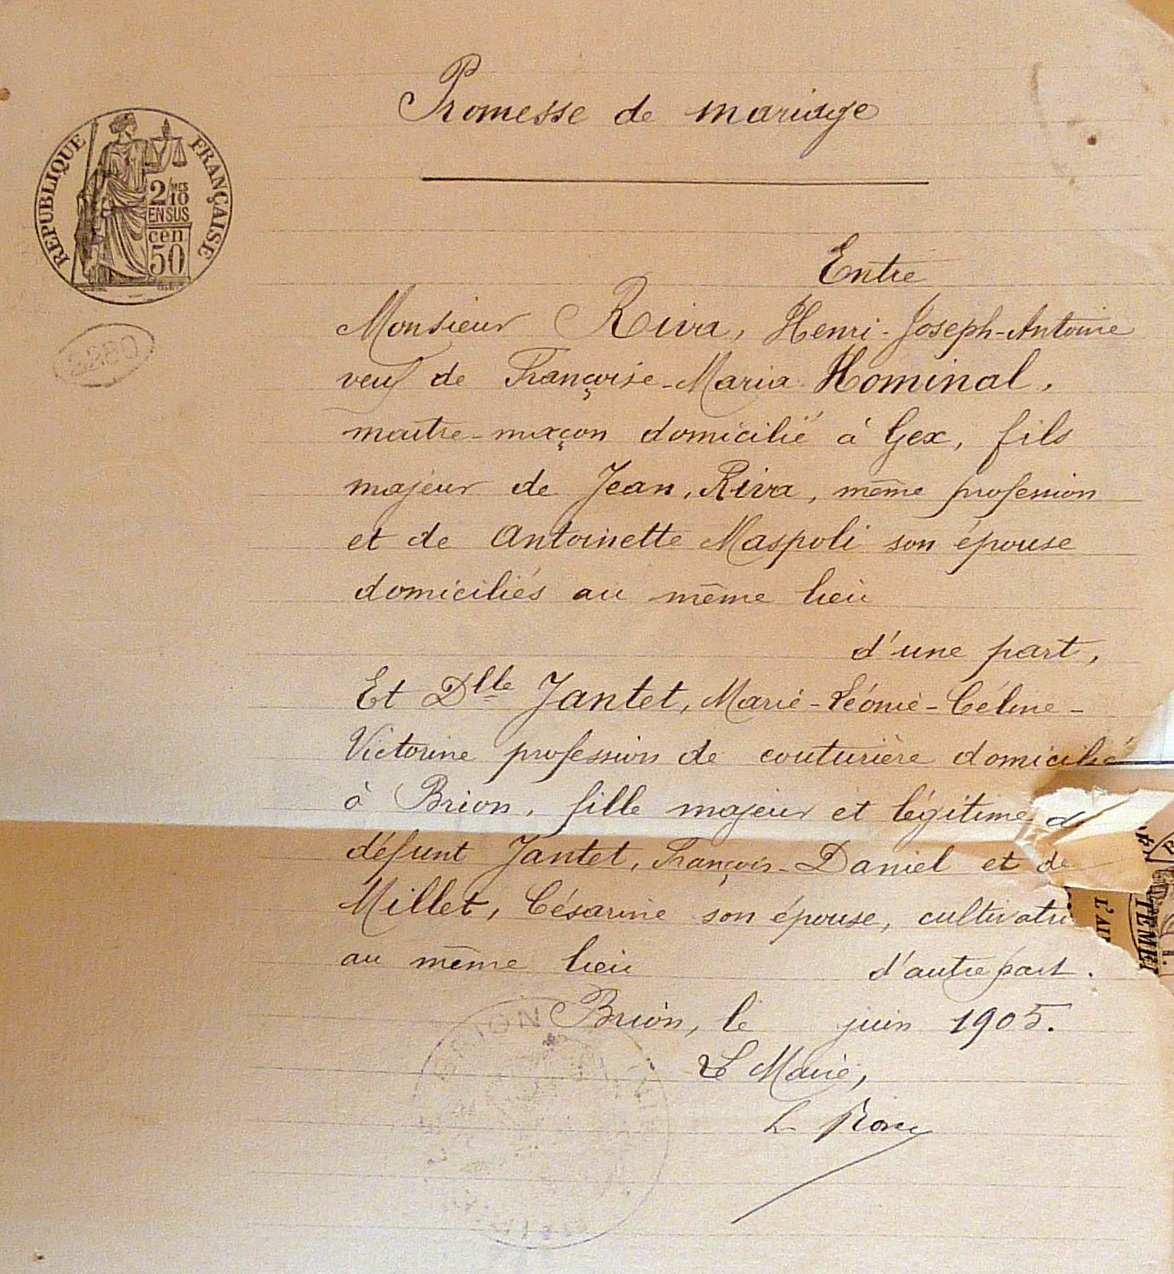 Promesse de mariage
RÉPUBLIQUE FRANÇAISE
2/10MES
EN SUS
cen
50
Entre
Monsieur Riva, Henri-Joseph-Antoine
veuf de Françoise-Maria Hominal,
maître-maçon domicilié à Gex, fils
majeur de Jean, Riva, même profession
et de Antoinette Maspoli son épouse
domiciliés au même lieu
d'une part,
Et Dlle Jantet, Marie-Léonie-Céline-
Victorine profession de couturière domicilié
à Brion, fille majeur et légitime d
défunt Jantet, François-Daniel et de
Millet, Césarine son épouse, cultivatri
au même lieu d'autre part.
Brion, le juin 1905.
Le Maire,
BRION